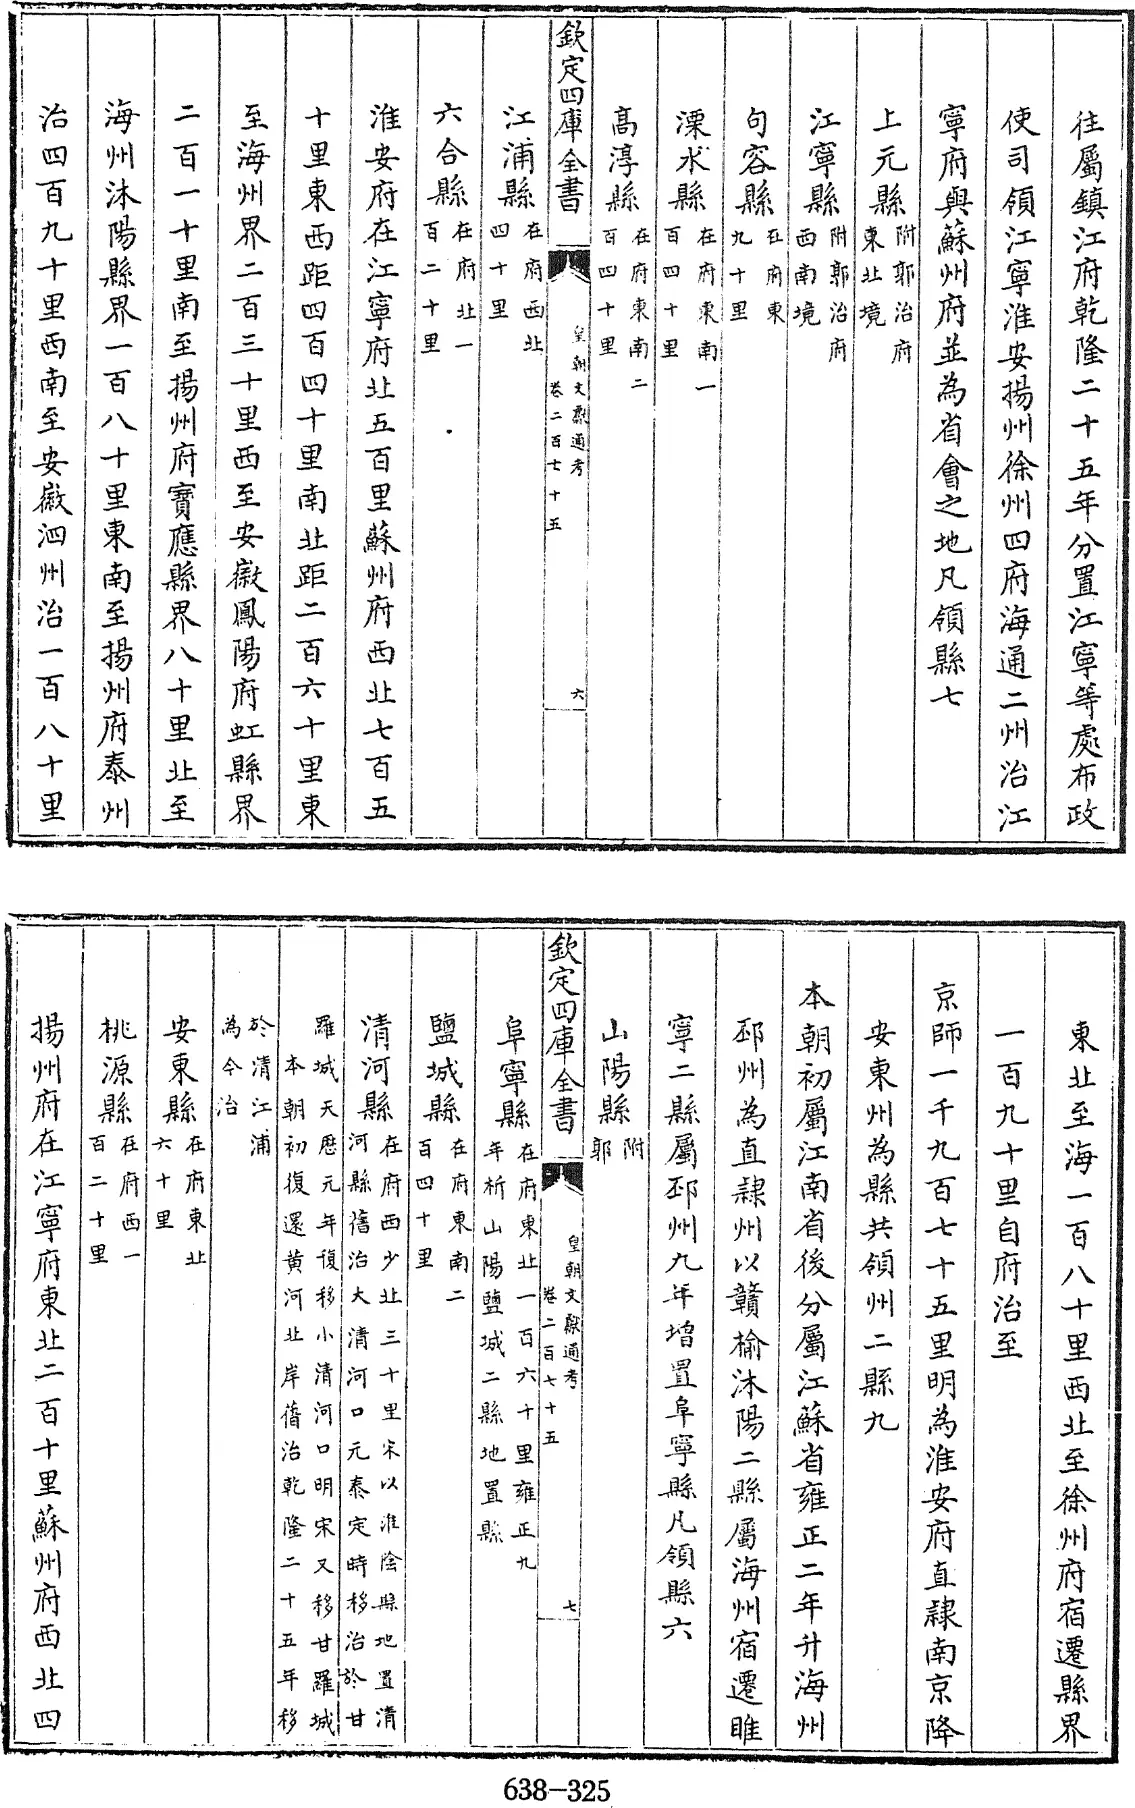 往屬鎮江府乾隆二十五年分置江寧等處布政
使司領江寧淮安揚州徐州四府海通二州治江
寧府與蘇州府並為省會之地凡領縣七
上元縣附郭治府東北境
江寧縣附郭治府西南境
句容縣在府東九十里
溧水縣在府東南一百四十里
高淳縣在府東南二百四十里
欽定四庫全書
皇朝文獻通考
卷二百七十五
六
江浦縣在府西北四十里
六合縣在府北一百二十里
淮安府在江寧府北五百里蘇州府西北七百五
十里東西距四百四十里南北距二百六十里東
至海州界二百三十里西至安徽鳳陽府虹縣界
二百一十里南至揚州府寶應縣界八十里北至
海州沭陽縣界一百八十里東南至揚州府泰州
治四百九十里西南至安徽泗州治一百八十里
東北至海一百八十里西北至徐州府宿遷縣界
一百九十里自府治至
京師一千九百七十五里明為淮安府直隸南京降
安東州為縣共領州二縣九
本朝初屬江南省後分屬江蘇省雍正二年升海州
邳州為直隸州以贛榆沭陽二縣屬海州宿遷睢
寧二縣屬邳州九年增置阜寧縣凡領縣六
山陽縣附郭
欽定四庫全書
皇朝文獻通考
卷二百七十五
七
阜寧縣在府東北一百六十里雍正九年析山陽鹽城二縣地置縣
鹽城縣在府東南二百四十里
清河縣在府西少北三十里宋以淮陰縣地置清河縣舊治大清河口元泰定時移治於甘
羅城天歷元年復移小清河口明宋又移甘羅城本朝初復還黃河北岸舊治乾隆二十五年移
於清江浦為今治
安東縣在府東北六十里
桃源縣在府西一百二十里
揚州府在江寧府東北二百十里蘇州府西北四
638-325